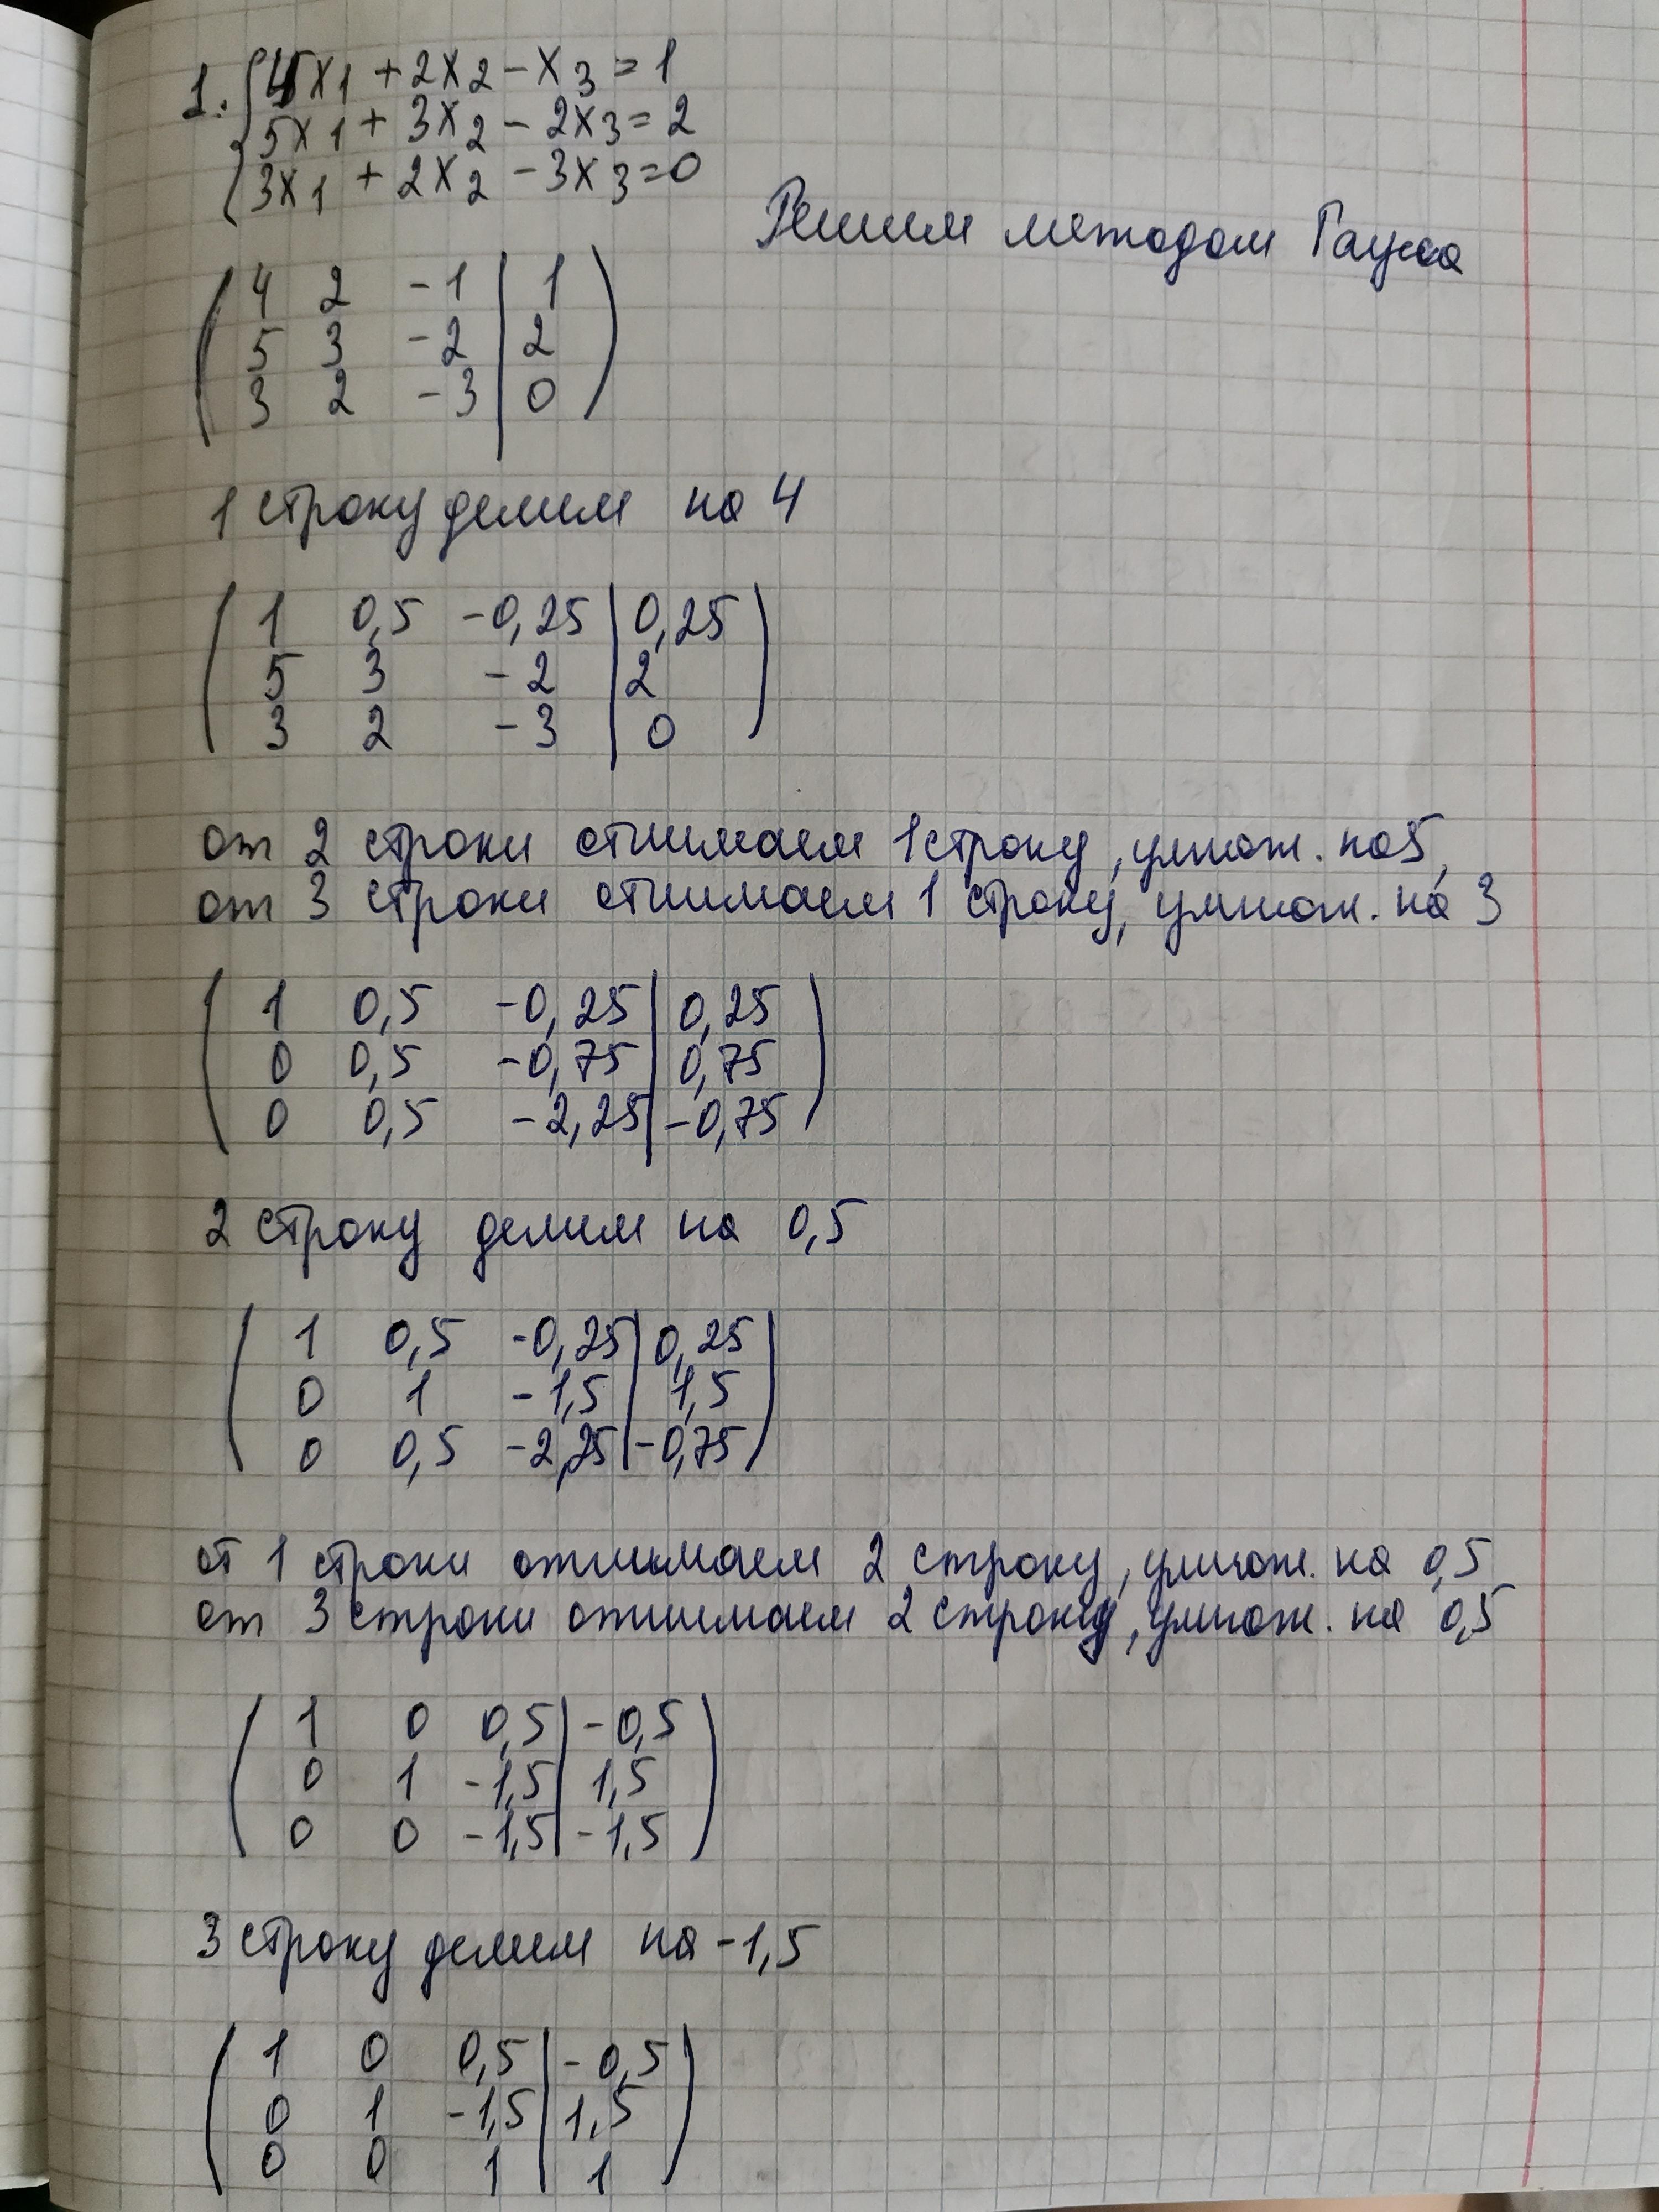 1. 4x1 + 2x2 - x3 = 1
5x1 + 3x2 - 2x3 = 2
3x1 + 2x2 - 3x3 = 0
Решим методом Гаусса
4 2 -1 | 1
5 3 -2 | 2
3 2 -3 | 0
1 строку делим на 4
1 0,5 -0,25 | 0,25
5 3 -2 | 2
3 2 -3 | 0
от 2 строки отнимаем 1 строку, умнож. на 5,
от 3 строки отнимаем 1 строку, умнож. на 3
1 0,5 -0,25 | 0,25
0 0,5 -0,75 | 0,75
0 0,5 -2,25 | -0,75
2 строку делим на 0,5
1 0,5 -0,25 | 0,25
0 1 -1,5 | 1,5
0 0,5 -2,25 | -0,75
от 1 строки отнимаем 2 строку, умнож. на 0,5
от 3 строки отнимаем 2 строку, умнож. на 0,5
1 0 0,5 | -0,5
0 1 -1,5 | 1,5
0 0 -1,5 | -1,5
3 строку делим на -1,5
1 0 0,5 | -0,5
0 1 -1,5 | 1,5
0 0 1 | 1